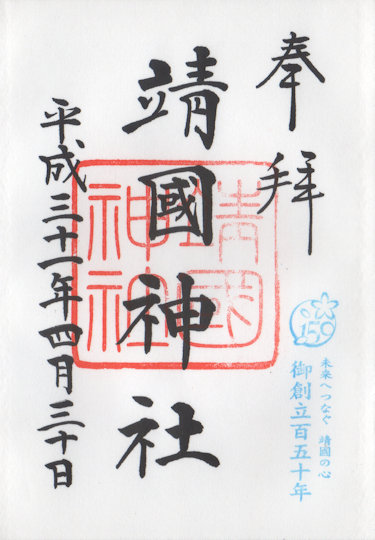 奉拝
靖國神社
平成三十一年四月三十日
靖國神社
150
未来へつなぐ 靖國の心
御創立百五十年